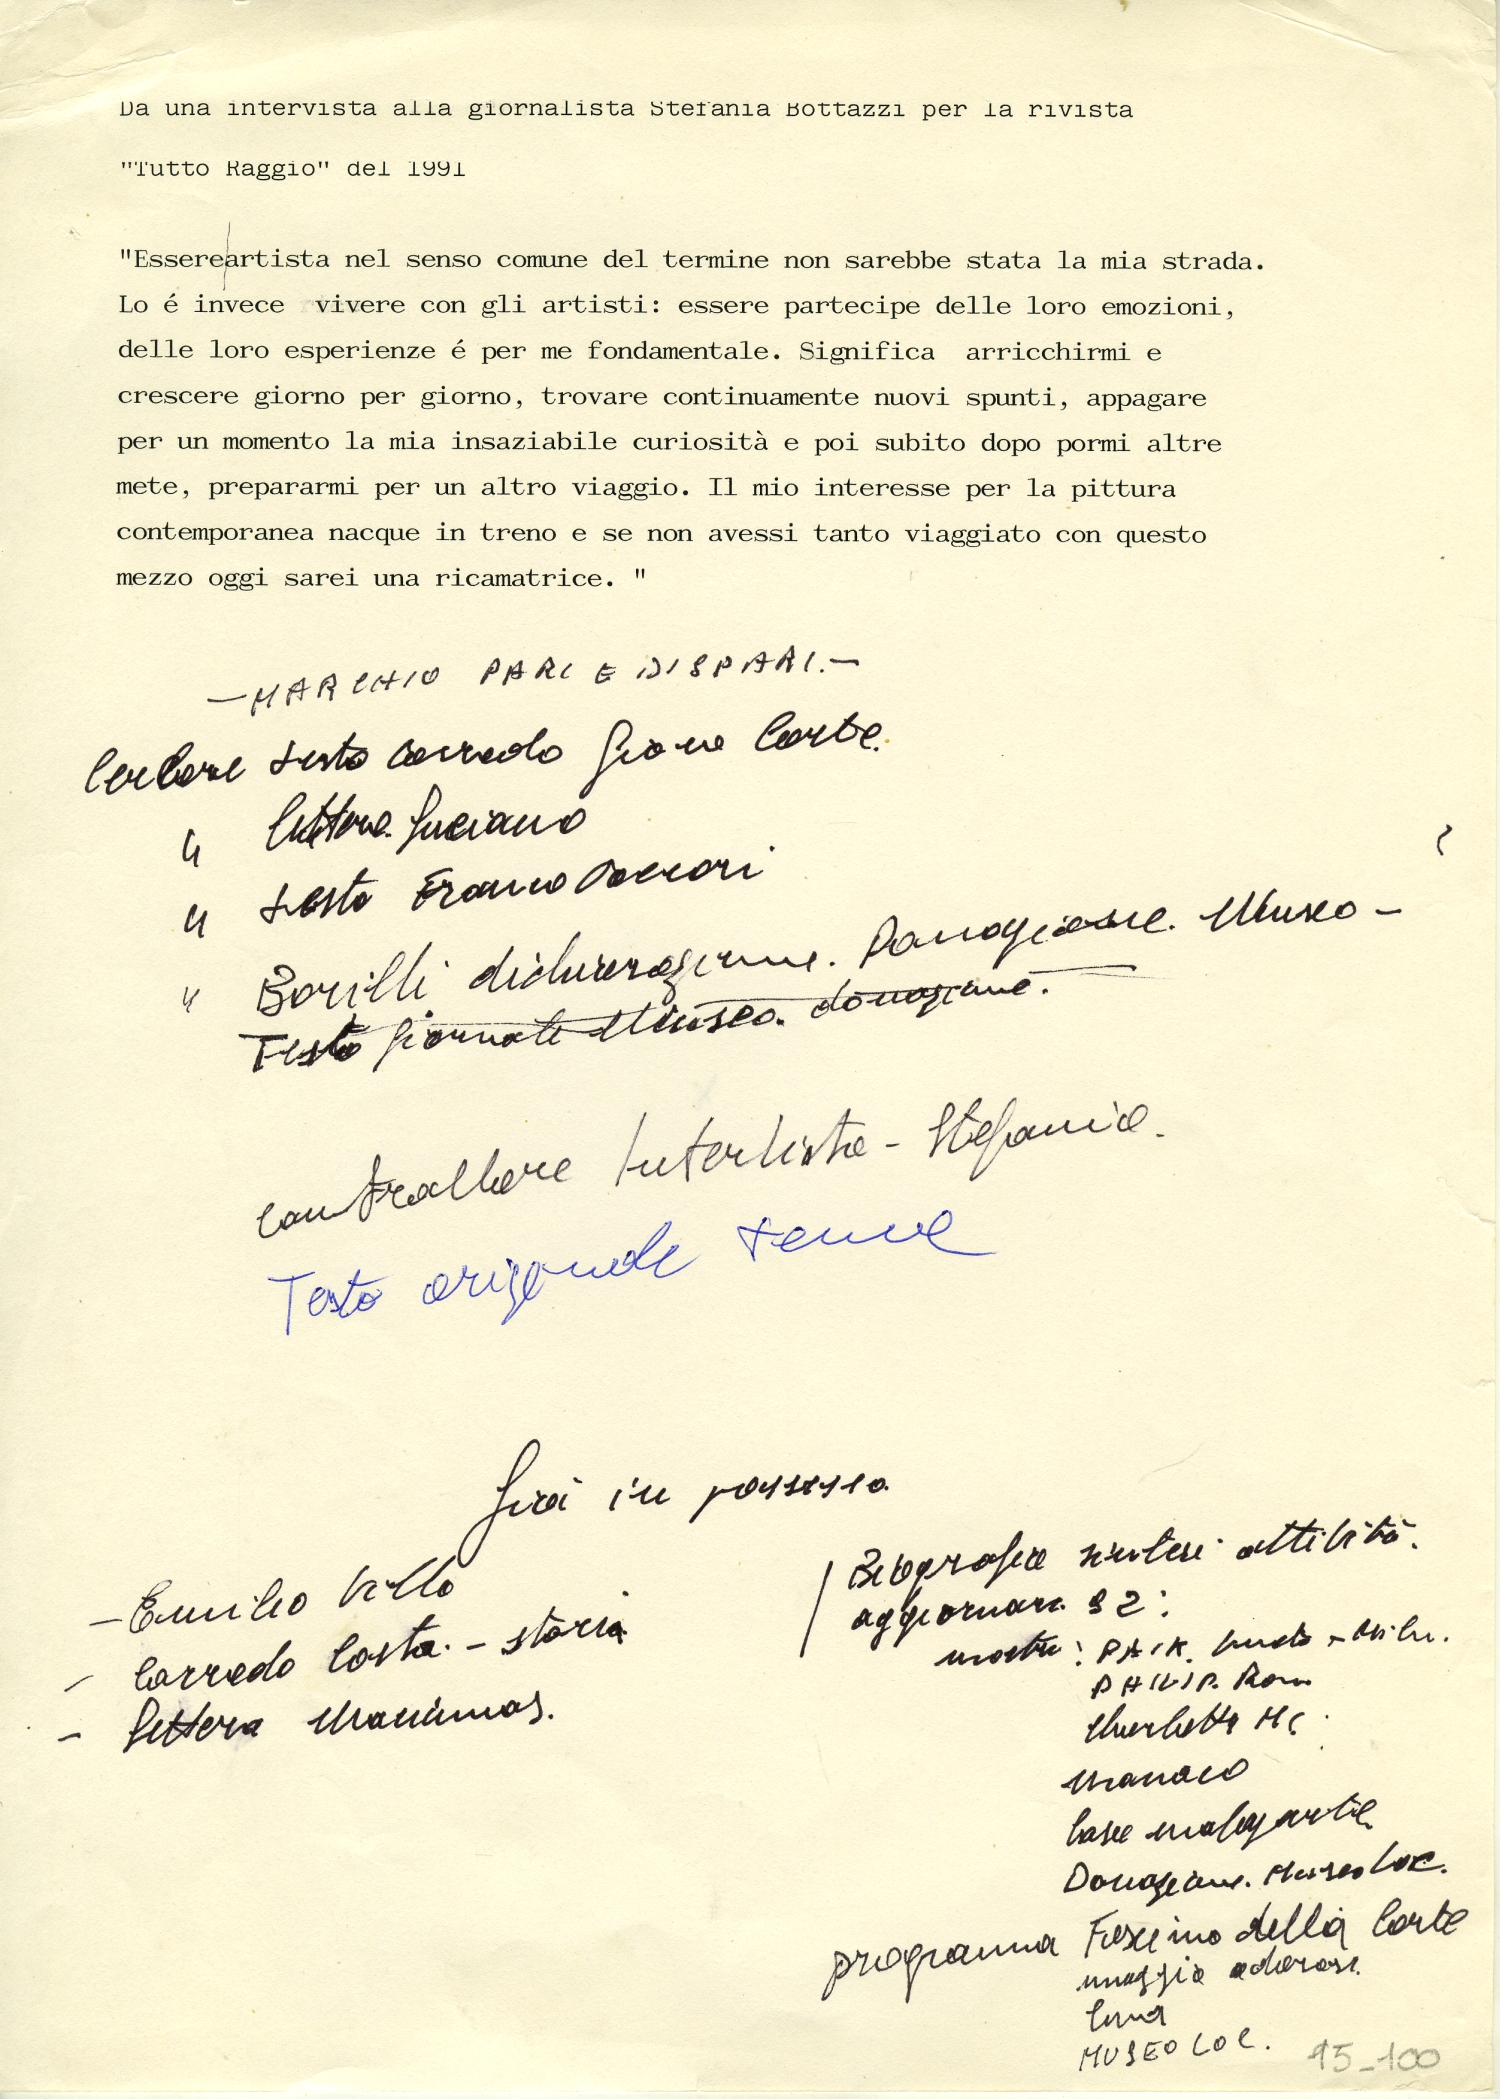 Da una intervista alla giornalista Stefania Bottazzi per la rivista
"Tutto Raggio" del 1991
"Essereartista nel senso comune del termine non sarebbe stata la mia strada.
Lo é invece vivere con gli artisti: essere partecipe delle loro emozioni,
delle loro esperienze é per me fondamentale. Significa arricchirmi e
crescere giorno per giorno, trovare continuamente nuovi spunti, appagare
per un momento la mia insaziabile curiosità e poi subito dopo pormi altre
mete, prepararmi per un altro viaggio. Il mio interesse per la pittura
contemporanea nacque in treno e se non avessi tanto viaggiato con questo
mezzo oggi sarei una ricamatrice. "
- MARCHIO PARI E DISPARI. -
Cercare testo Corrado Corte.
" lettera Luciano
" testo Franco Vaccari
" Borilli dichiarazione. Donazione. Museo -
Testo giornale Museo. donazione.
controllare Intervista - Stefania.
Testo originale
già in possesso
- Emilio Villa
- Corrado Costa. - storia
- lettera Maciunas.
Biografia sintesi attività.
aggiornare 92:
mostre: PAIK.
PHILIP.
Charlotte Mc.
Monaco
Case malaparte
Donazione. Museo Loc.
programma Fascino della Carta
Luna
MUSEO LOC.
95_100